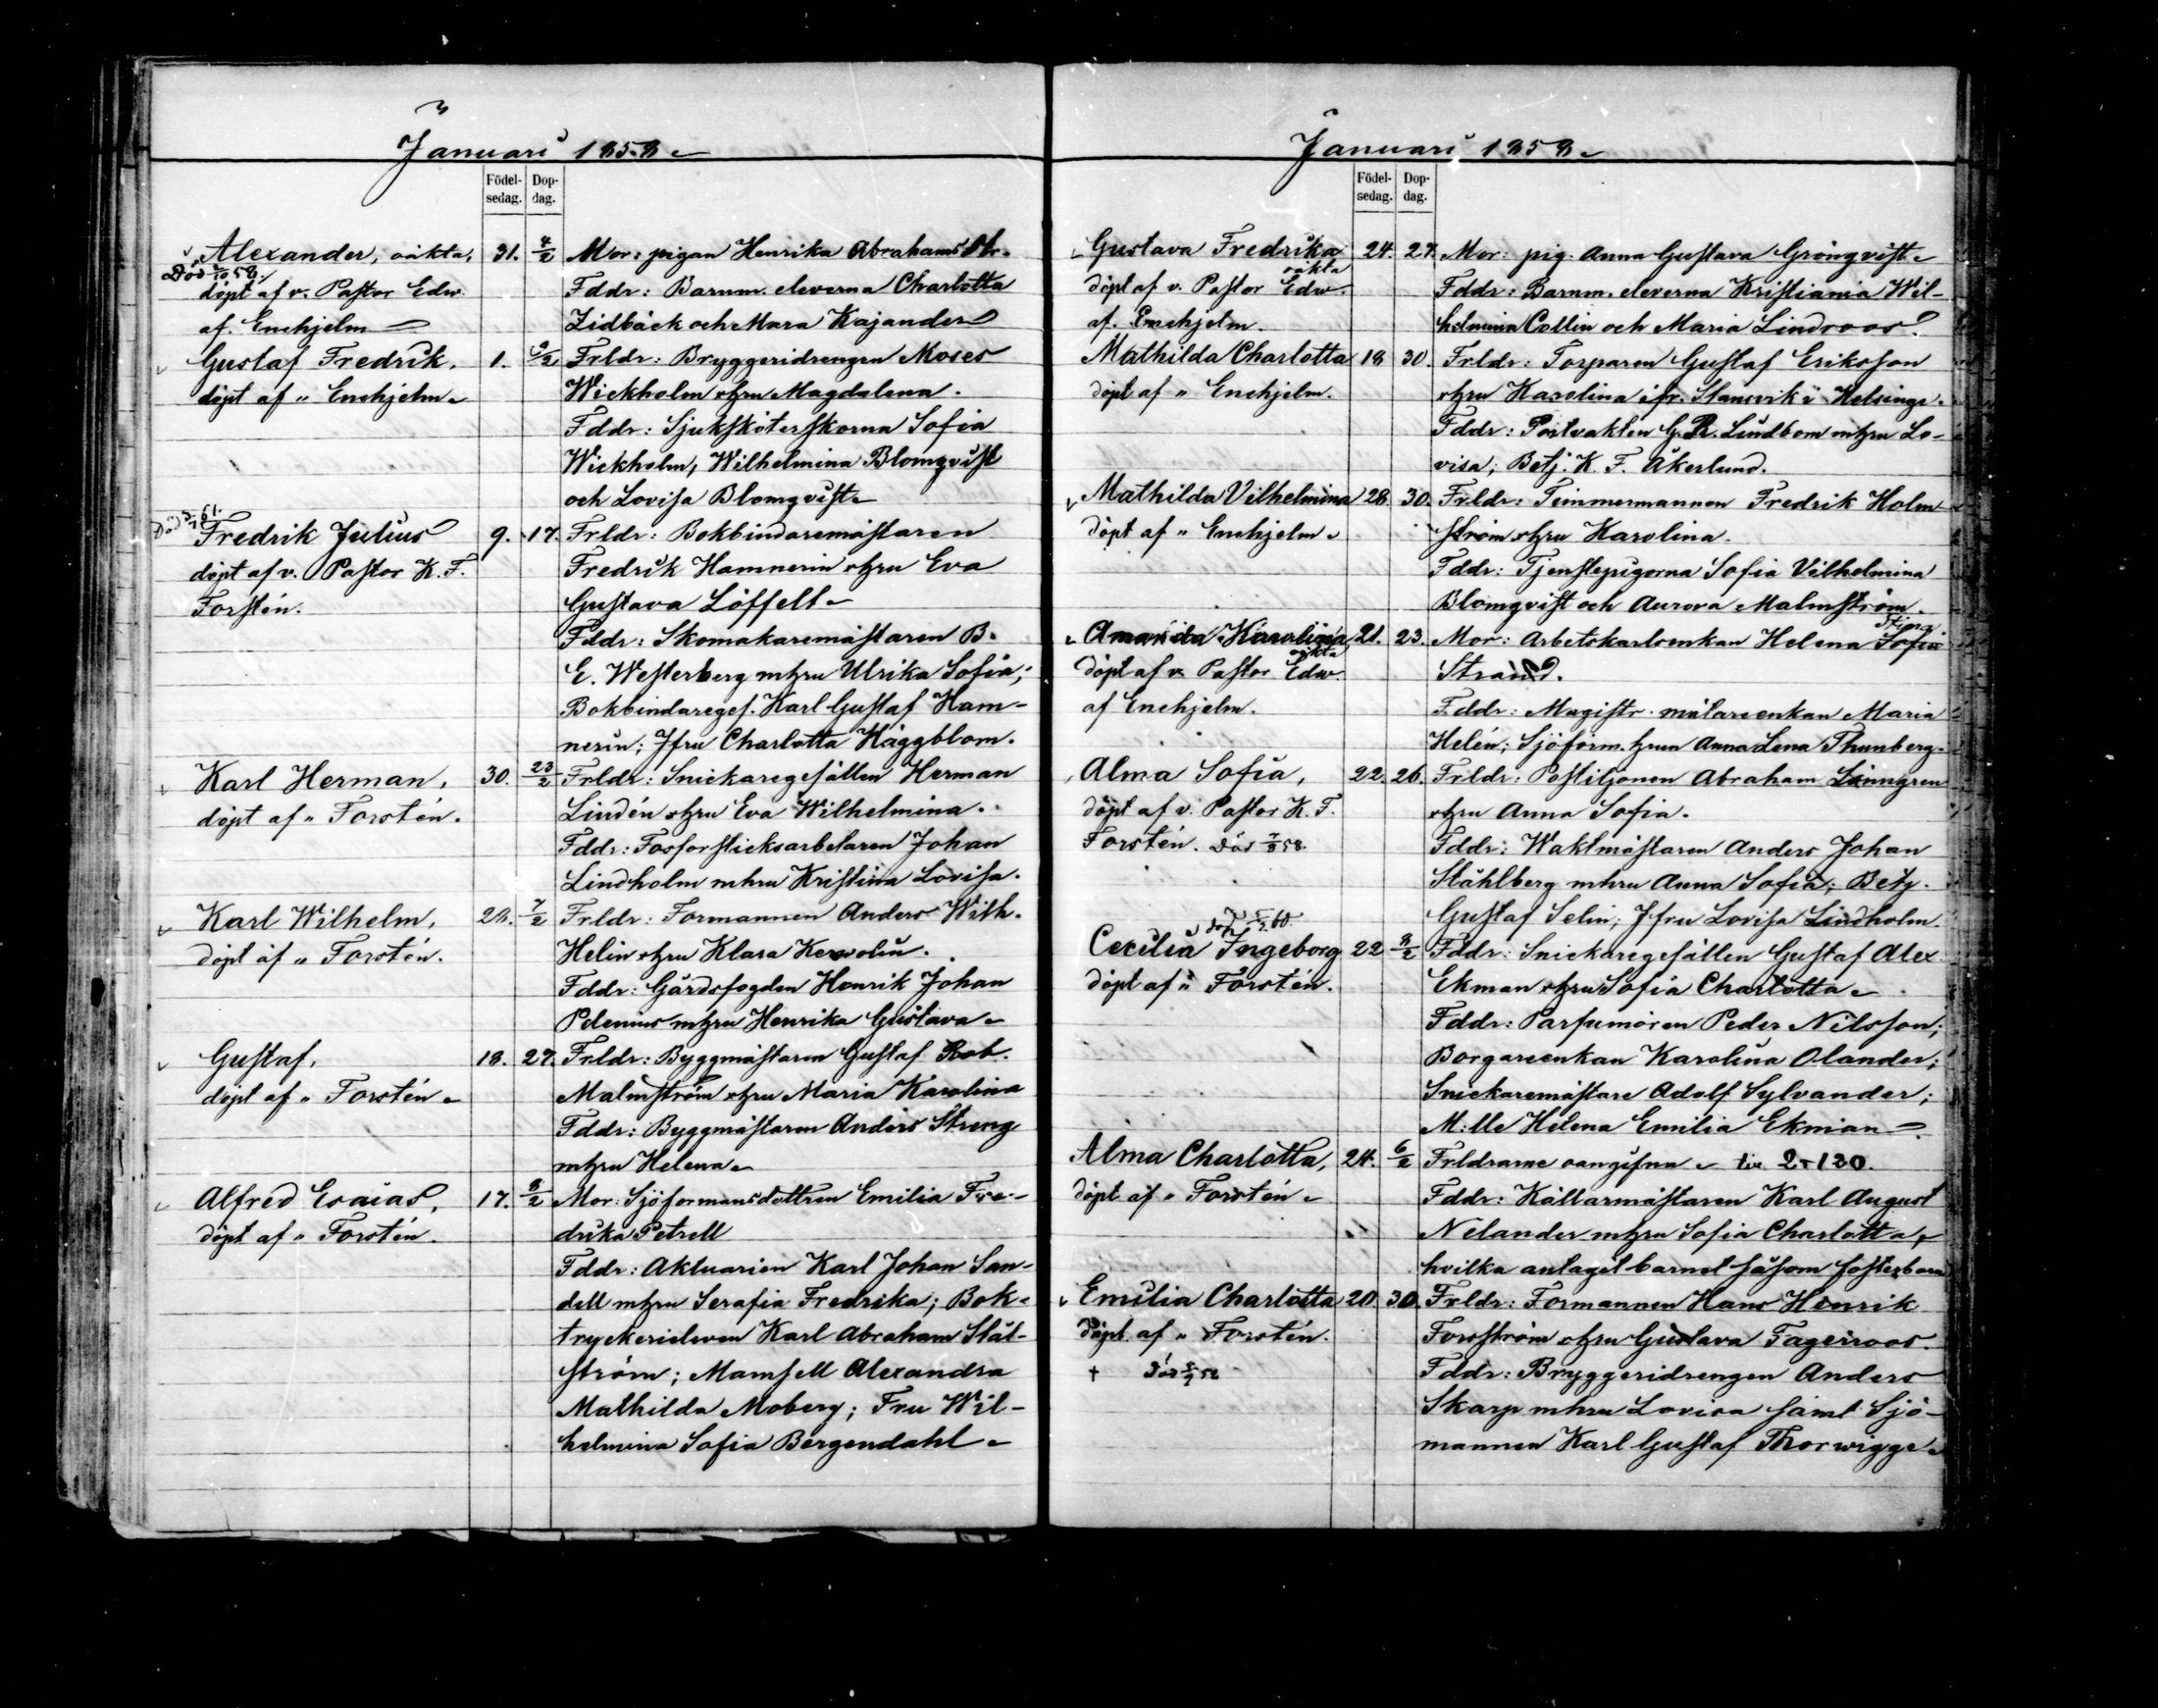 Januari 1858
Födel- Dop-
sedag. dag.
Alexander, oäkta, 31. 7/2 Mor: pigan Henrika Abrahamsdtr.
Död 58.
döpt af v. Pastor Edw. Fddr: Barnm. eleverna Charlotta
af. Enehjelm Lidbäck och Mara Kajander
Gustaf Fredrik, 1. 2/2 Frldr: Bryggeridrengen Moses
döpt af " Enehjelm Wickholm o hru Magdalena.
Fddr: Sjuksköterskorna Sofia
Wickholm, Wilhelmina Blomqvist
och Lovisa Blomqvist
Död 61.
Fredrik Julius 9. 17. Frldr: Bokbindaremästaren
döpt af v. Pastor K. F. Fredrik Hamnerin o hru Eva
Forstén. Gustava Löffelt
Fddr: Skomakaremästaren B.
E. Westerberg m hru Ulrika Sofia;
Bokbindareges. Karl Gustaf Ham-
nerin; Jfru Charlotta Häggblom.
Karl Herman, 30. 23/2 Frldr: Snickaregesällen Herman
döpt af " Forstén. Lindén o hru Eva Wilhelmina.
Fddr: Fosforsticksarbetaren Johan
Lindholm m hru Kristina Lovisa.
Karl Wilhelm, 28. 7/2 Frldr: Formannen Anders Wilh.
döpt af " Forstén. Helin o hru Klara Kerolin.
Fddr: Gårdsfogden Henrik Johan
Polenius m hru Henrika Gustava
Gustaf, 18. 27. Frldr: Byggmästaren Gustaf Rob.
döpt af " Forstén Malmström o hru Maria Karolina
Fddr: Byggmästaren Anders Streng
m hru Helena
Alfred Esaias, 17. 8/2 Mor: Sjöformansdottren Emilia Fre-
döpt af " Forstén. drika Petrell
Fddr: Aktuarien Karl Johan San-
dell m hru Serafia Fredrika; Bok-
tryckerieleven Karl Abraham Stål-
ström; Mamsell Alexandra
Mathilda Moberg; Fru Wil-
helmina Sofia Bergendahl
Januari 1858
Födel- Dop-
sedag. dag.
Gustava Fredrika 24. 27. Mor: pig. Anna Gustava Grönqvist
oäkta
döpt af v. Pastor Edw. Fddr: Barnm. eleverna Kristiania Wil-
af. Enehjelm. helmina Collin och Maria Lindroos.
Mathilda Charlotta 18 30. Frldr: Torparen Gustaf Eriksson
döpt af " Enehjelm. o hru Karolina ifr. Stansvik i Helsinge.
Fddr: Portvakten G. R. Lindbom m hru Lo-
visa; Betj. K. F. Åkerlund.
Mathilda Vilhelmina 28. 30. Frldr: Timmermannen Fredrik Holm-
döpt af " Enehjelm ström o hru Karolina.
Fddr: Tjenstepigorna Sofia Vilhelmina
Blomqvist och Aurora Malmström.
Stina
Amanda Karolina, 21. 23. Mor: Arbetskarlsenkan Helena Sofia
oäkta
döpt af v. Pastor Edw. Strand.
af Enehjelm. Fddr: Magistr. målareenkan Maria
Helén; Sjöform. hrun Anna Lena Thunberg.
Alma Sofia, 22. 26. Frldr: Postiljonen Abraham Lönngren
döpt af v. Pastor K. F. o hru Anna Sofia.
Forstén. Död 7/8 58. Fddr: Waktmästaren Anders Johan
Ståhlberg m hru Anna Sofia; Betj.
Gustaf Selin; Jfru Lovisa Lindholm.
död 60.
Cecilia Ingeborg 22 8/2 Fddr: Snickaregesällen Gustaf Alex
döpt af " Forstén. Ekman o hru Sofia Charlotta
Fddr: Parfumören Peder Nilsson;
Borgareenkan Karolina Olander;
Snickaremästare Adolf Sylvander;
M:lle Helena Emilia Ekman
Alma Charlotta, 24. 6/2 Frldrarne oangifna 2-120.
döpt af " Forstén Fddr: Källarmästaren Karl August
Nelander m hru Sofia Charlotta,
hvilka antagit barnet såsom fosterbarn
Emilia Charlotta 20 30. Frldr: Formannen Hans Henrik
döpt af " Forstén. Forsström o hru Gustava Fagerroos.
† Död 58 Fddr: Bryggeridrengen Anders
Skarp m hru Lovisa samt Sjö-
mannen Karl Gustaf Thorwigge